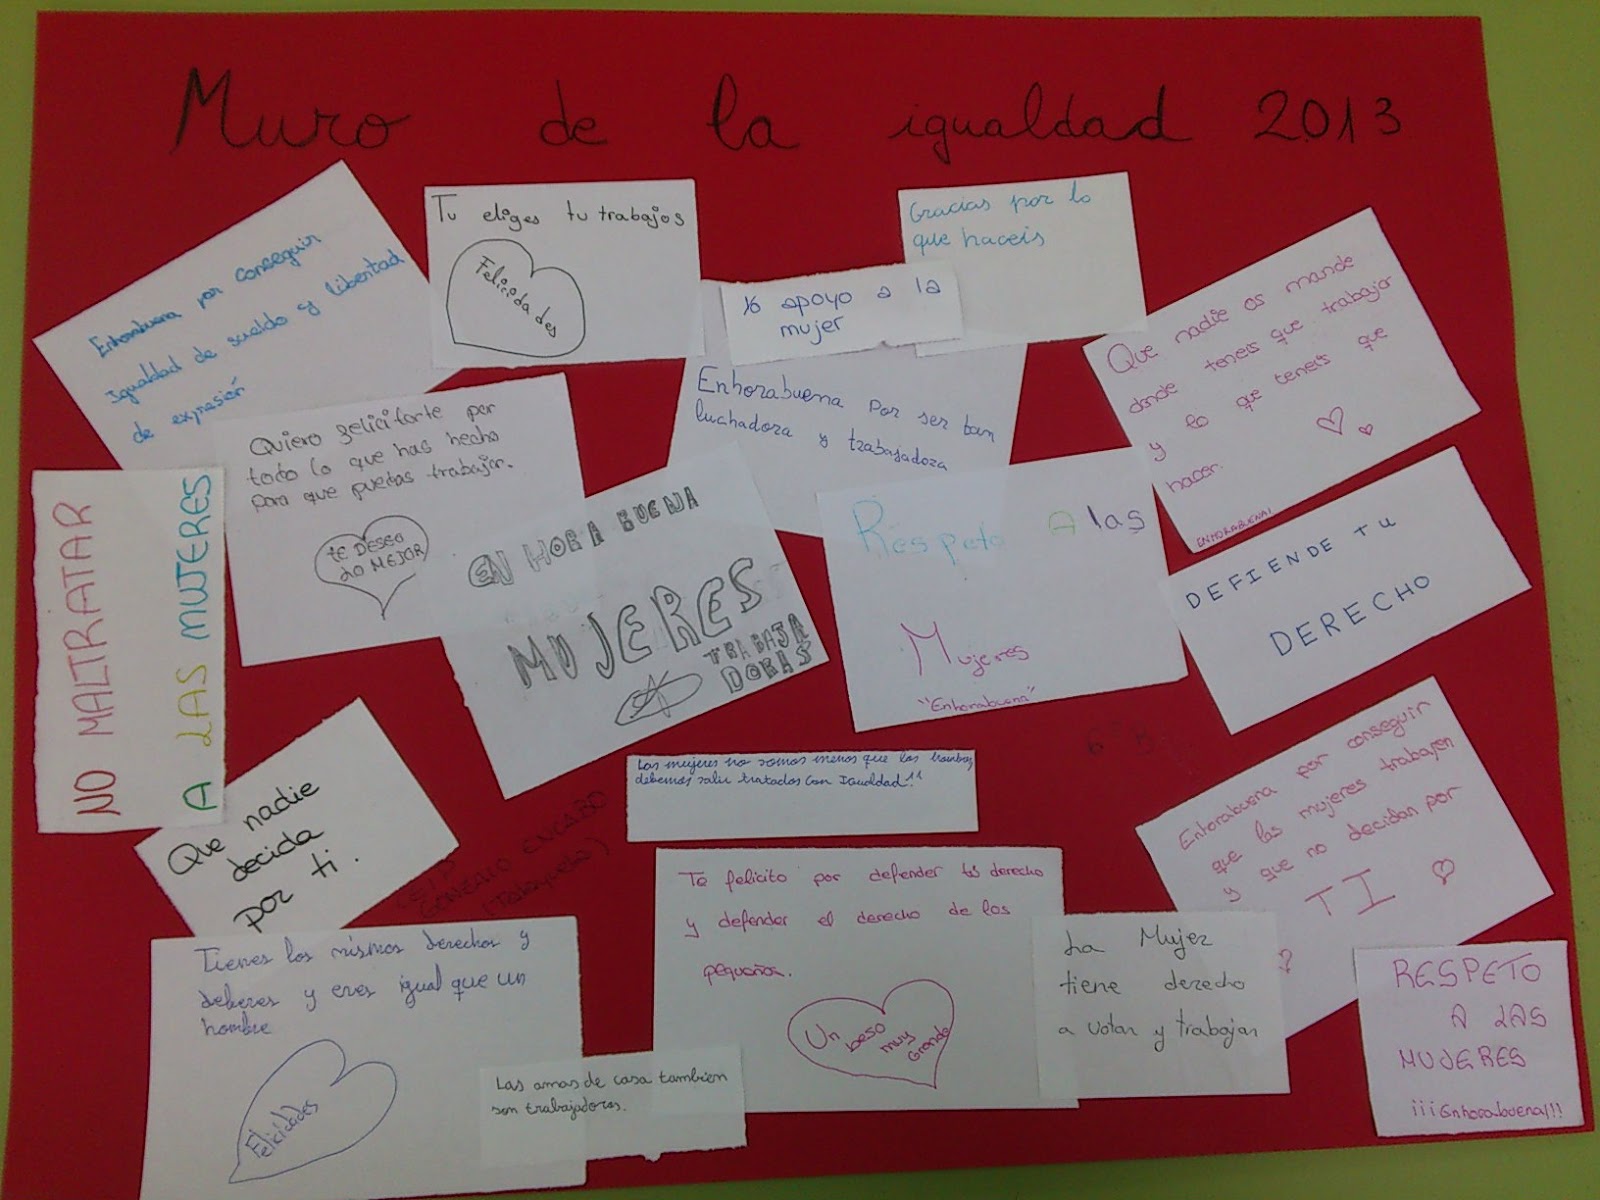 Muro de la igualdad 2013
Enhorabuena por conseguir
igualdad de sueldo y libertad
de expresión
Tu eliges tu trabajos
Felicidades
Gracias por lo
que haceis
Yo apoyo a la
mujer
Que nadie os mande
donde teneis que trabajar
y lo que teneis que
hacer.
ENHORABUENA!
Enhorabuena por ser tan
luchadora y trabajadora
Quiero felicitarte por
todo lo que has hecho
para que puedas trabajar.
te DESEO
LO MEJOR
NO MALTRATAR
A LAS MUJERES
EN HORA BUENA
MUJERES
TRABAJA
DORAS
Respeto A las
Mujeres
"Enhorabuena"
DEFIENDE TU
DERECHO
6º B
Las mujeres no somos menos que los hombres
debemos salir tratados con Igualdad!!
Enhorabuena por conseguir
que las mujeres trabajen
y que no decidan por
TI
Que nadie
decida
por ti.
GONZALO ENCABO
(Talayuela)
Te felicito por defender tus derecho
y defender el derecho de los
pequeños.
Un beso
muy
Grande
La Mujer
tiene derecho
a votar y trabajar
RESPETO
A LAS
MUJERES
¡¡¡Enhorabuena!!!
Tienes los mismos derechos y
deberes y eres igual que un
hombre
Felicidades
Las amas de casa tambien
son trabajadoras.